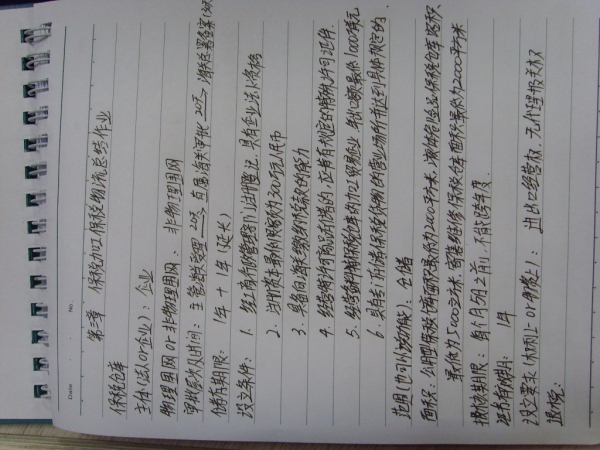 Date
No.
第三章 保税加工保税物流总结作业
保税仓库
主体(法人or企业):企业
物理围网or非物理围网:非物理围网
审批层次及时间:主管海关受理 20天 直属海关审批 海关总署备案
储存期限:1年+1年(延长)
设立条件:1. 经工商行政管理部门注册登记,具有企业法人资格
2. 注册资本最低限额为300万元人民币
3. 具备向海关缴纳税款的能力
4. 经营特殊许可商品存储的,应持有规定的特殊许可证件.
5. 经营备料保税仓库的加工贸易企业,年出口额最低1000万美元
6. 具有专门存储保税货物的营业场所并达到具体规定的.
范围(也可认为功能):仓储
面积:公用型保税仓库面积最低为2000平方米,液体危险品保税仓库容积
最低为5000立方米 寄售维修保税仓库面积最低为2000平方米
报核期限:每个月5日之前,不能跨年度.
证书有效期:1年
设立要求(体现在or何类上):进出口经营权,无代理报关权